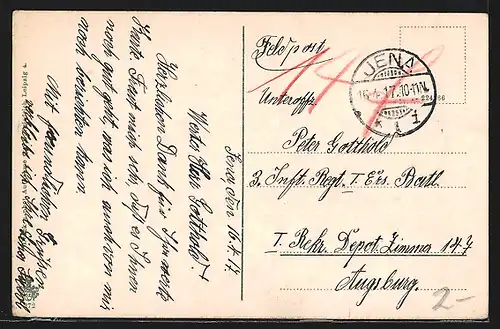 Jena, den 16.4.17
Werter Herr Gotthold!
Herzlichen Dank für Ihre werte
Karte. Freut mich sehr, daß es Ihnen
noch gut geht, was ich auch von mir
noch berichten kann.
Mit freundlichen Grüßen
Feldpost
JENA
16.4.17.10-11N.
* 1 1
Unteroffz.
Peter Gotthold
3. Inft. Regt. I. Ers. Batl.
I. Rekr. Depot. Zimmer 147
Augsburg.
2-